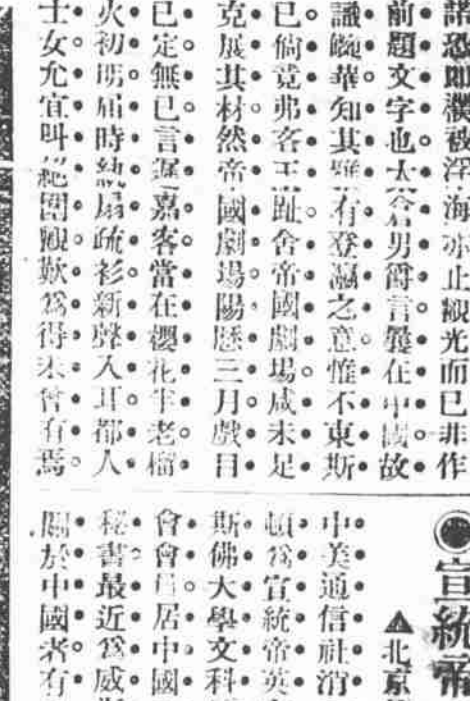 諾恐即襆被浮海亦止觀光而已非作
前題文字也大倉男爵言曩在中國故
識畹華知其雅有登瀛之意惟不東斯
已倘竟弗客玉趾舍帝國劇場咸未足
克展其材然帝國劇場陽曆三月戲目
已定無已言遲嘉客當在櫻花半老榴
火初明屆時紈扇疏衫新聲入耳都人
士女允宜叫絕圍觀歎為得未曾有焉
宣統帝
▲北京
中美通信社消
頓為宣統帝英
斯佛大學文科
會會居中國
秘書最近為威
關於中國者有